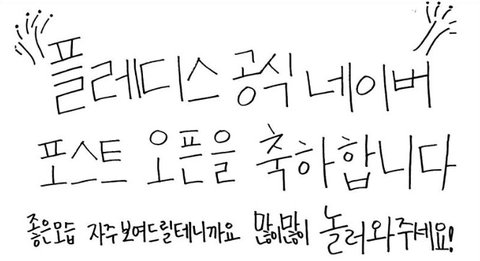 플레디스 공식 네이버
포스트 오픈을 축하합니다
좋은모습 자주 보여드릴테니까요 많이많이 놀러와주세요!